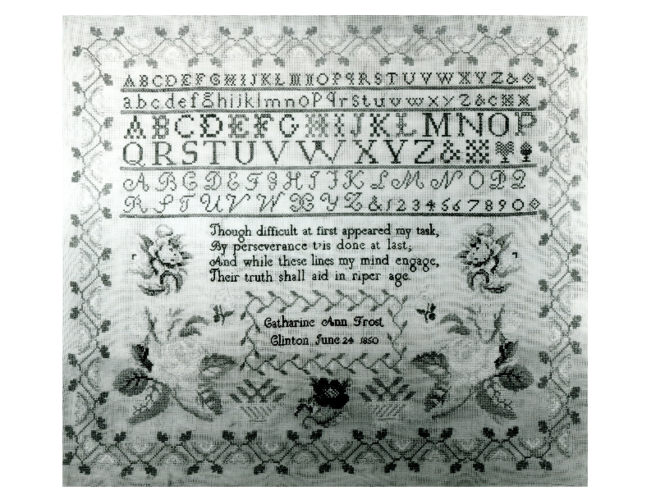 ABCDEFGHIJKLMNOPQRSTUVWXYZ&
abcdefghijklmnopqrstuvwxyz&c
ABCDEFGHIJKLMNOP
QRSTUVWXYZ&
ABCDEFGHIJKLMNOPQ
RSTUVWXYZ&1234567890
Though difficult at first appeared my task,
By perseverance t'is done at last;
And while these lines my mind engage,
Their truth shall aid in riper age.
Catharine Ann Frost
Clinton June 24 1850